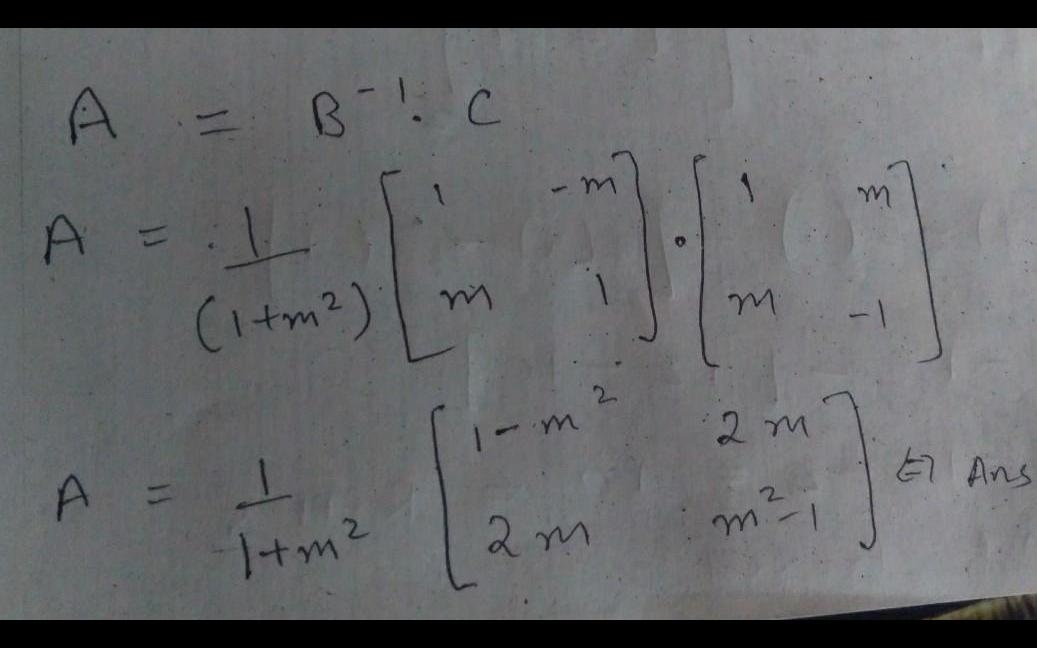 A = B⁻¹. C
A = 1/(1+m²) [1 -m; m 1] • [1 m; m -1]
A = 1/1+m² [1-m² 2m; 2m m²-1] Ans